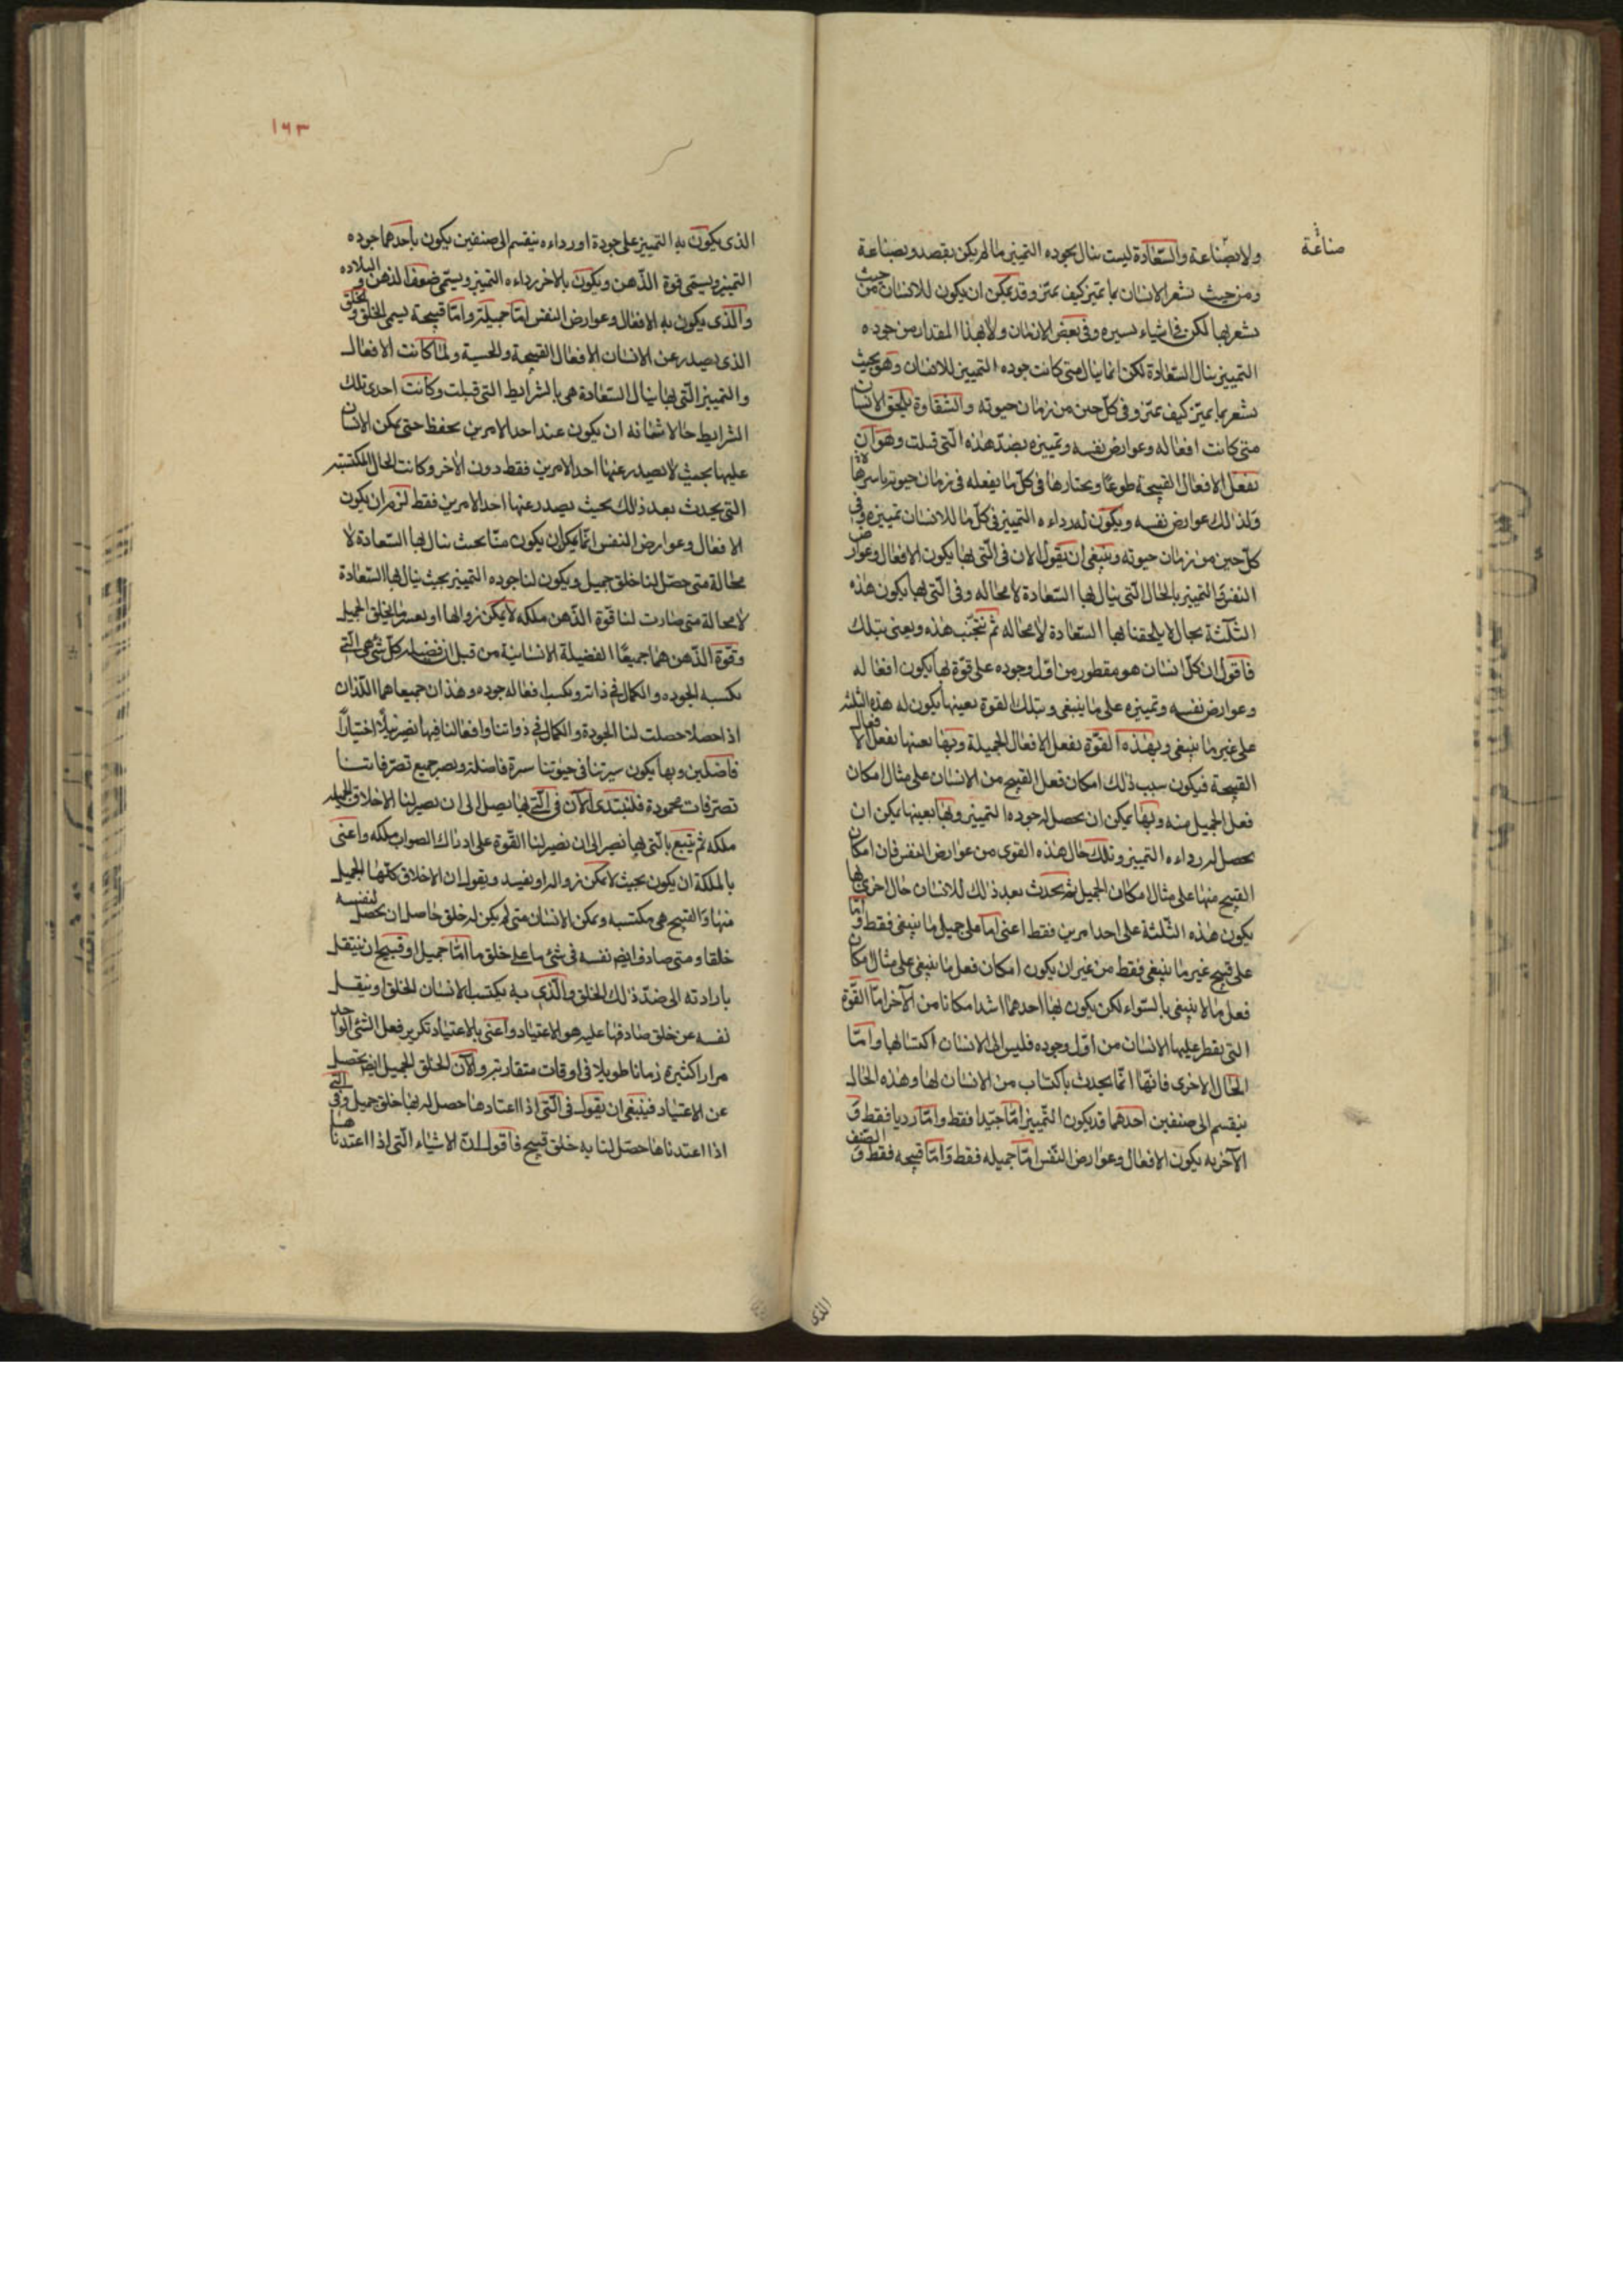 صناعة
ولا بصناعة والسعادة ليست ينال بجوده التمييز ما لم يكن بقصد وبصناعة
ومن حيث يشعر الانسان بما تميز كيف يميز وقد يمكن ان يكون للانسان من حيث
يشعر بها لكن فى اشياء يسيره وفى بعض الازمان ولا بهذا المقدار من جوده
التمييز ينال السعادة لكن انما ينال متى كانت جوده التمييز للانسان وهو بحيث
يشعر بما يميز كيف يميز وفى كل حين من زمان حيوته والشقاوة يلحق الانسان
متى كانت افعاله وعوارض نفسه وتمييزه بضد هذه التى قيلت وهو ان
يفعل الافعال القبيحة طوعا ويختارها فى كل ما يفعله فى زمان حيوته باسرها
وكذلك عوارض نفسه ويكون له رداءه التمييز فى كل ما للانسان تمييزه وفى
كل حين من زمان حيوته وينبغى ان يقول الان فى التى بها يكون الافعال وعوارض
النفس والتمييز بالحال التى ينال بها السعادة لا محاله وفى التى بها يكون هذه
الثلثة بحال لا يلحقنا بها السعادة لا محاله ثم نتجنب هذه ويعنى بتلك
فاقول ان كل انسان هو مفطور من اول وجوده على قوة بها يكون افعاله
وعوارض نفسه وتمييزه على ما ينبغى وبتلك القوة بعينها يكون له هذه الثلثة
على غير ما ينبغى وبهذه القوة يفعل الافعال الجميلة وبها بعينها يفعل الافعال
القبيحة فيكون سبب ذلك امكان فعل القبيح من الانسان على مثال امكان
فعل الجميل منه وبها يمكن ان يحصل له جوده التمييز وبها بعينها يمكن ان
يحصل له رداءه التمييز وتلك حال هذه القوى من عوارض النفس فان امكان
القبيح منها على مثال امكان الجميل ثم يحدث بعد ذلك للانسان حال اخرى بها
يكون هذه الثلثة على احد امرين فقط اعنى اما على جميل ما ينبغى فقط واما
على قبيح غير ما ينبغى فقط من غير ان يكون امكان فعل ما ينبغى على مثال امكان
فعل ما لا ينبغى بالسواء لكن يكون بها احدهما اشد امكانا من الآخر اما القوة
التى يفطر عليها الانسان من اول وجوده فليس الى الانسان اكتسابها واما
الحال الاخرى فانها انما يحدث باكتساب من الانسان لها وهذه الحال
ينقسم الى صنفين احدهما قد يكون التمييز اما جيدا فقط واما رديا فقط و
الآخر به يكون الافعال وعوارض النفس اما جميله فقط واما قبيحه فقط والصنف
الذى
١٦٣
الذى يكون به التمييز على جودة او رداءه ينقسم الى صنفين يكون باحدهما جوده
التمييز ويسمى قوة الذهن ويكون بالاخر رداءه التمييز ويسمى ضعف الذهن والبلاده
والذى يكون به الافعال وعوارض النفس اما جميلة واما قبيحة يسمى الخلق والخلق
الذى يصدر عن الانسان الافعال القبيحة والحسنة ولما كانت الافعال
والتمييز التى بها ينال السعادة هى بالشرائط التى قيلت وكانت احدى تلك
الشرايط حالا شانه ان يكون عند احد الامرين يحفظ حتى يمكن الانسان
عليها بحيث لا يصدر عنها احد الامرين فقط دون الآخر وكانت الحال المكتسبة
التى يحدث بعد ذلك بحيث يصدر عنها احد الامرين فقط لزم ان يكون
الافعال وعوارض النفس انما يمكن ان يكون منا بحيث ينال بها السعادة لا
محالة متى حصل لنا خلق جميل ويكون لنا جوده التمييز بحيث ينال بها السعادة
لا محالة متى صارت لنا قوة الذهن ملكه لا يمكن زوالها او يعسر فالخلق الجميل
وقوة الذهن هما جميعا الفضيلة الانسانية من قبل ان فضيلة كل شئ هى التى
يكسبه الجوده والكمال فى ذاته ويكسب افعاله جوده وهذان جميعا هما اللذان
اذا حصلا حصلت لنا الجودة والكمال فى ذواتنا وافعالنا فبها نصير نبلاء اختيارا
فاضلين وبها يكون سيرتنا فى حيوتنا سيرة فاضلة ويصير جميع تصرفاتنا
تصرفات محمودة فلنبتدى الآن فى التى بها يصل الى ان يصير لنا الاخلاق الجميلة
ملكه ثم يتبع بالتى بها نصير الى ان تصير لنا القوة على ادراك الصواب ملكه واعنى
بالملكة ان يكون بحيث لا يمكن زواله او يفسد ويقول ان الاخلاق كلها الجميل
منها والقبيح هى مكتسبه ويمكن الانسان متى لم يكن له خلق حاصل ان يحصل لنفسه
خلقا ومتى صادف ايضا نفسه فى شئ ما على خلق ما اما جميل او قبيح ان ينتقل
بارادته الى ضد ذلك الخلق والذى به يكتسب الانسان الخلق او ينقل
نفسه عن خلق صادفها عليه هو الاعتياد واعنى بالاعتياد تكرير فعل الشئ الواحد
مرارا كثيرة زمانا طويلا فى اوقات متقاربة والآن الخلق الجميل ايضا يحصل
عن الاعتياد فينبغى ان يقول فى التى اذا اعتادها حصل له بها خلق جميل وفى التى
اذا اعتدناها حصل لنا به خلق قبيح فاقول ان الاشياء التى اذا اعتدناها